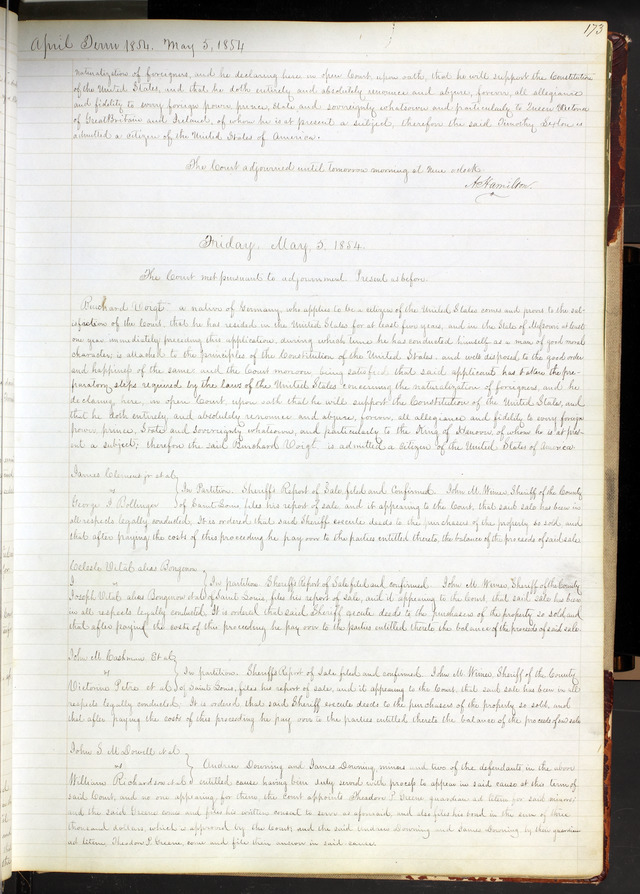 173
April Term 1854. May 5, 1854
naturalization of foreigners, and he declaring here in open Court, upon oath, that he will support the Constitution
of the United States, and that he doth entirely and absolutely renounce and abjure, forever, all allegiance
and fidelity to every foreign power, prince, state and sovereignty whatsoever and particularly to Queen Victoria
of Great Britain and Ireland, of whom he is at present a subject, therefore the said Timothy is
admitted a citizen of the United States of America.
The Court adjourned until tomorrow morning at nine o'clock
A. Hamilton.
Friday, May, 5, 1854.
The Court met pursuant to adjournment. Present as before.
Voigt a native of Germany, who applies to be a citizen of the United States comes and proves to the sat-
isfaction of the Court, that he has resided in the United States for at least five years, and in the State of Missouri at least
one year immediately preceding this application, during which time he has conducted himself as a man of good moral
character, is attached to the principles of the Constitution of the United States, and well disposed to the good order
and happiness of the same and the Court moreover being satisfied that said applicant has taken the pre-
paratory steps required by the laws of the United States concerning the naturalization of foreigners, and he
declaring here, in open Court, upon oath that he will support the Constitution of the United States, and
that he doth entirely and absolutely renounce and abjure, forever, all allegiance and fidelity to every foreign
power, prince, State and Sovereignty whatsoever, and particularly to the King of Hanover, of whom he is at pres-
ent a subject; therefore the said Voigt is admitted a citizen of the United States of America
James Clemens jr et al
vs In Partition. Sheriff's Report of Sale filed and Confirmed. John M. Wimer, Sheriff of the County
George I Bollinger of Saint Louis, files his report of sale and it appearing to the Court, that said sale has been in
all respects legally conducted; It is ordered that said Sheriff execute deeds to the purchasers of the property so sold, and
that after paying the costs of this proceeding he pay over to the parties entitled thereto the balance of the proceeds of said sale.
Celeste Vital alias Borgeron
vs In partition. Sheriff's Report of Sale filed and confirmed. John M. Wimer, Sheriff of the County
Joseph Vital alias Borgeron et al of Saint Louis, files his report of sale, and it appearing to the Court, that said sale has been
in all respects legally conducted. It is ordered that said Sheriff execute deeds to the purchasers of the property so sold and
that after paying the costs of this proceeding he pay over to the parties entitled thereto the balance of the proceeds of said sale.
John M. Cashman, et al
vs In partition. Sheriff's Report of Sale filed and confirmed. John M. Wimer, Sheriff of the County
Victoria Petre et al of Saint Louis, files his report of sale, and it appearing to the Court, that said sale has been in all
respects legally conducted. It is ordered that said Sheriff execute deeds to the purchasers of the property so sold, and
that after paying the costs of this proceeding he pay over to the parties entitled thereto the balance of the proceeds of said sale
John S. McDowell et al
vs Andrew Downing and James Downing, minors and two of the defendants in the above
William Richardson et al entitled cause having been duly served with process to appear in said cause at this term of
said Court, and no one appearing for them, the court appoints Theodore P. Greene, guardian ad litem for said minors;
and the said Greene comes and files his written consent to serve as aforesaid, and also files his bond in the sum of three
thousand dollars, which is approved by the Court; and the said Andrew Downing and James Downing, by their guardian
ad litem, Theodore P. Greene, come and file their answer in said cause.